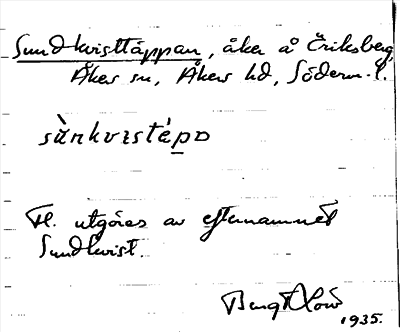 Sundkvisttäppan, åker å Eriksberg,
Åkers sn, Åkers hd, Söderm. l.
sùnkvistépo
Fl. utgöres av efternamnet
Sundkvist.
1935.